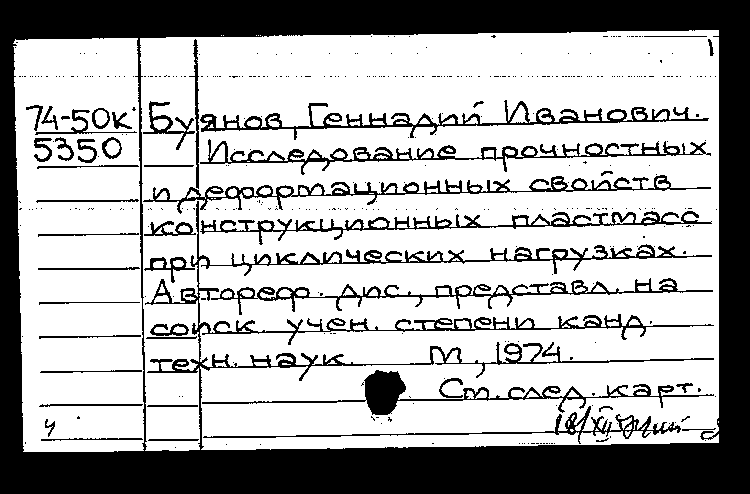 74-50к Буянов, Геннадий Иванович.
5350 Исследование прочностных
и деформационных свойств
конструкционных пластмасс
при циклических нагрузках.
Автореф. дис., представл. на
соиск. учен. степени канд.
техн. наук. М., 1974.
См. след. карт.
18/XII